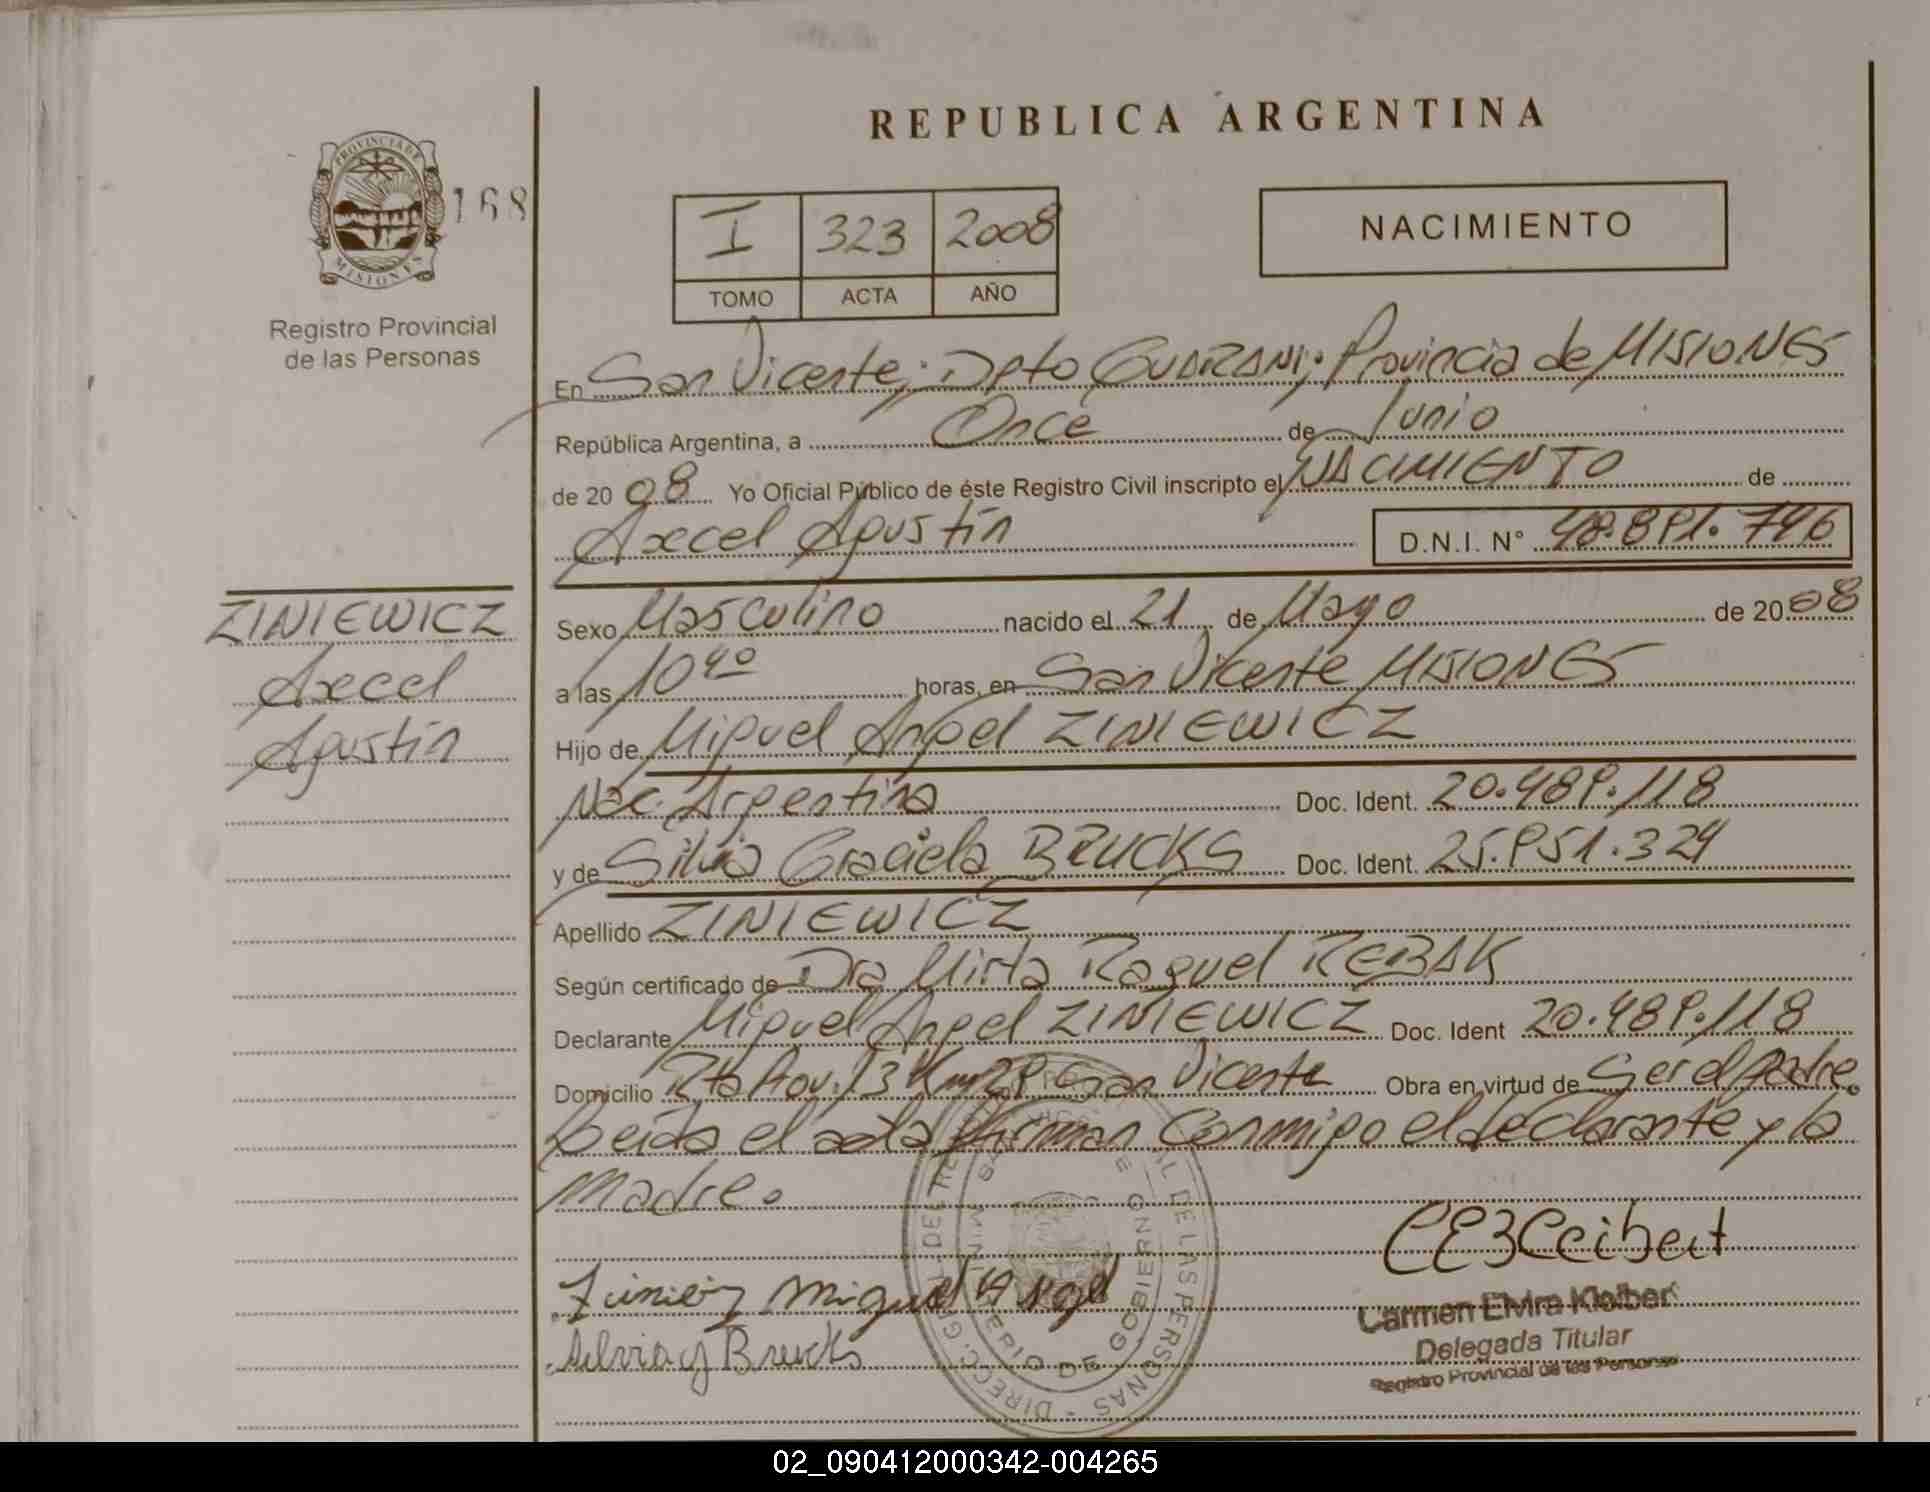 REPUBLICA ARGENTINA
PROVINCIA DE
MISIONES
168
Registro Provincial
de las Personas
I 323 2008
TOMO ACTA AÑO
NACIMIENTO
En San Vicente; Dpto GUARANI; Provincia de MISIONES
República Argentina, a Once de Junio
de 2008 Yo Oficial Público de éste Registro Civil inscripto el NACIMIENTO de
Axcel Agustín D.N.I. N° 48.891.796
ZINIEWICZ
Axcel
Agustín
Sexo Masculino nacido el 21 de Mayo de 2008
a las 10 40 horas, en San Vicente MISIONES
Hijo de Miguel Angel ZINIEWICZ
Nac. Argentina Doc. Ident. 20.489.118
y de Silvia Graciela BRUCKS Doc. Ident. 25.951.324
Apellido ZINIEWICZ
Según certificado de Dra Mirta Raquel REBAK
Declarante Miguel Angel ZINIEWICZ Doc. Ident 20.489.118
Domicilio Rta Prov. 13 Km 29 San Vicente Obra en virtud de Ser el padre.
Leída el acta firman Conmigo el declarante y la
madre.
Miguel Angel
Silvia G Brucks
Carmen Elvira Kleiber
Delegada Titular
Registro Provincial de las Personas
MINISTERIO DE GOBIERNO
DE LAS PERSONAS
02_090412000342-004265